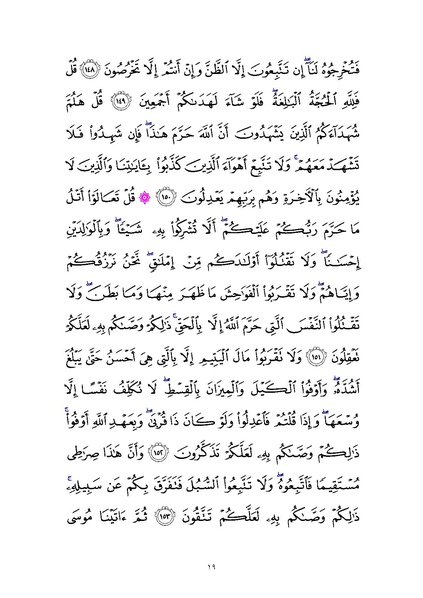 فَتُخْرِجُوهُ لَنَآ ۖ إِن تَتَّبِعُونَ إِلَّا ٱلظَّنَّ وَإِنْ أَنتُمْ إِلَّا تَخْرُصُونَ ١٤٨ قُلْ
فَلِلَّهِ ٱلْحُجَّةُ ٱلْبَـٰلِغَةُ ۖ فَلَوْ شَآءَ لَهَدَىٰكُمْ أَجْمَعِينَ ١٤٩ قُلْ هَلُمَّ
شُهَدَآءَكُمُ ٱلَّذِينَ يَشْهَدُونَ أَنَّ ٱللَّهَ حَرَّمَ هَـٰذَا ۖ فَإِن شَهِدُوا۟ فَلَا
تَشْهَدْ مَعَهُمْ ۚ وَلَا تَتَّبِعْ أَهْوَآءَ ٱلَّذِينَ كَذَّبُوا۟ بِـَٔايَـٰتِنَا وَٱلَّذِينَ لَا
يُؤْمِنُونَ بِٱلْـَٔاخِرَةِ وَهُم بِرَبِّهِمْ يَعْدِلُونَ ١٥٠ ۞ قُلْ تَعَالَوْا۟ أَتْلُ
مَا حَرَّمَ رَبُّكُمْ عَلَيْكُمْ ۖ أَلَّا تُشْرِكُوا۟ بِهِۦ شَيْـًٔا ۖ وَبِٱلْوَٰلِدَيْنِ
إِحْسَـٰنًا ۖ وَلَا تَقْتُلُوٓا۟ أَوْلَـٰدَكُم مِّنْ إِمْلَـٰقٍ ۖ نَّحْنُ نَرْزُقُكُمْ
وَإِيَّاهُمْ ۖ وَلَا تَقْرَبُوا۟ ٱلْفَوَٰحِشَ مَا ظَهَرَ مِنْهَا وَمَا بَطَنَ ۖ وَلَا
تَقْتُلُوا۟ ٱلنَّفْسَ ٱلَّتِى حَرَّمَ ٱللَّهُ إِلَّا بِٱلْحَقِّ ۚ ذَٰلِكُمْ وَصَّىٰكُم بِهِۦ لَعَلَّكُمْ
تَعْقِلُونَ ١٥١ وَلَا تَقْرَبُوا۟ مَالَ ٱلْيَتِيمِ إِلَّا بِٱلَّتِى هِىَ أَحْسَنُ حَتَّىٰ يَبْلُغَ
أَشُدَّهُۥ ۖ وَأَوْفُوا۟ ٱلْكَيْلَ وَٱلْمِيزَانَ بِٱلْقِسْطِ ۖ لَا نُكَلِّفُ نَفْسًا إِلَّا
وُسْعَهَا ۖ وَإِذَا قُلْتُمْ فَٱعْدِلُوا۟ وَلَوْ كَانَ ذَا قُرْبَىٰ ۖ وَبِعَهْدِ ٱللَّهِ أَوْفُوا۟ ۚ
ذَٰلِكُمْ وَصَّىٰكُم بِهِۦ لَعَلَّكُمْ تَذَكَّرُونَ ١٥٢ وَأَنَّ هَـٰذَا صِرَٰطِى
مُسْتَقِيمًا فَٱتَّبِعُوهُ ۖ وَلَا تَتَّبِعُوا۟ ٱلسُّبُلَ فَتَفَرَّقَ بِكُمْ عَن سَبِيلِهِۦ ۚ
ذَٰلِكُمْ وَصَّىٰكُم بِهِۦ لَعَلَّكُمْ تَتَّقُونَ ١٥٣ ثُمَّ ءَاتَيْنَا مُوسَى
١٩